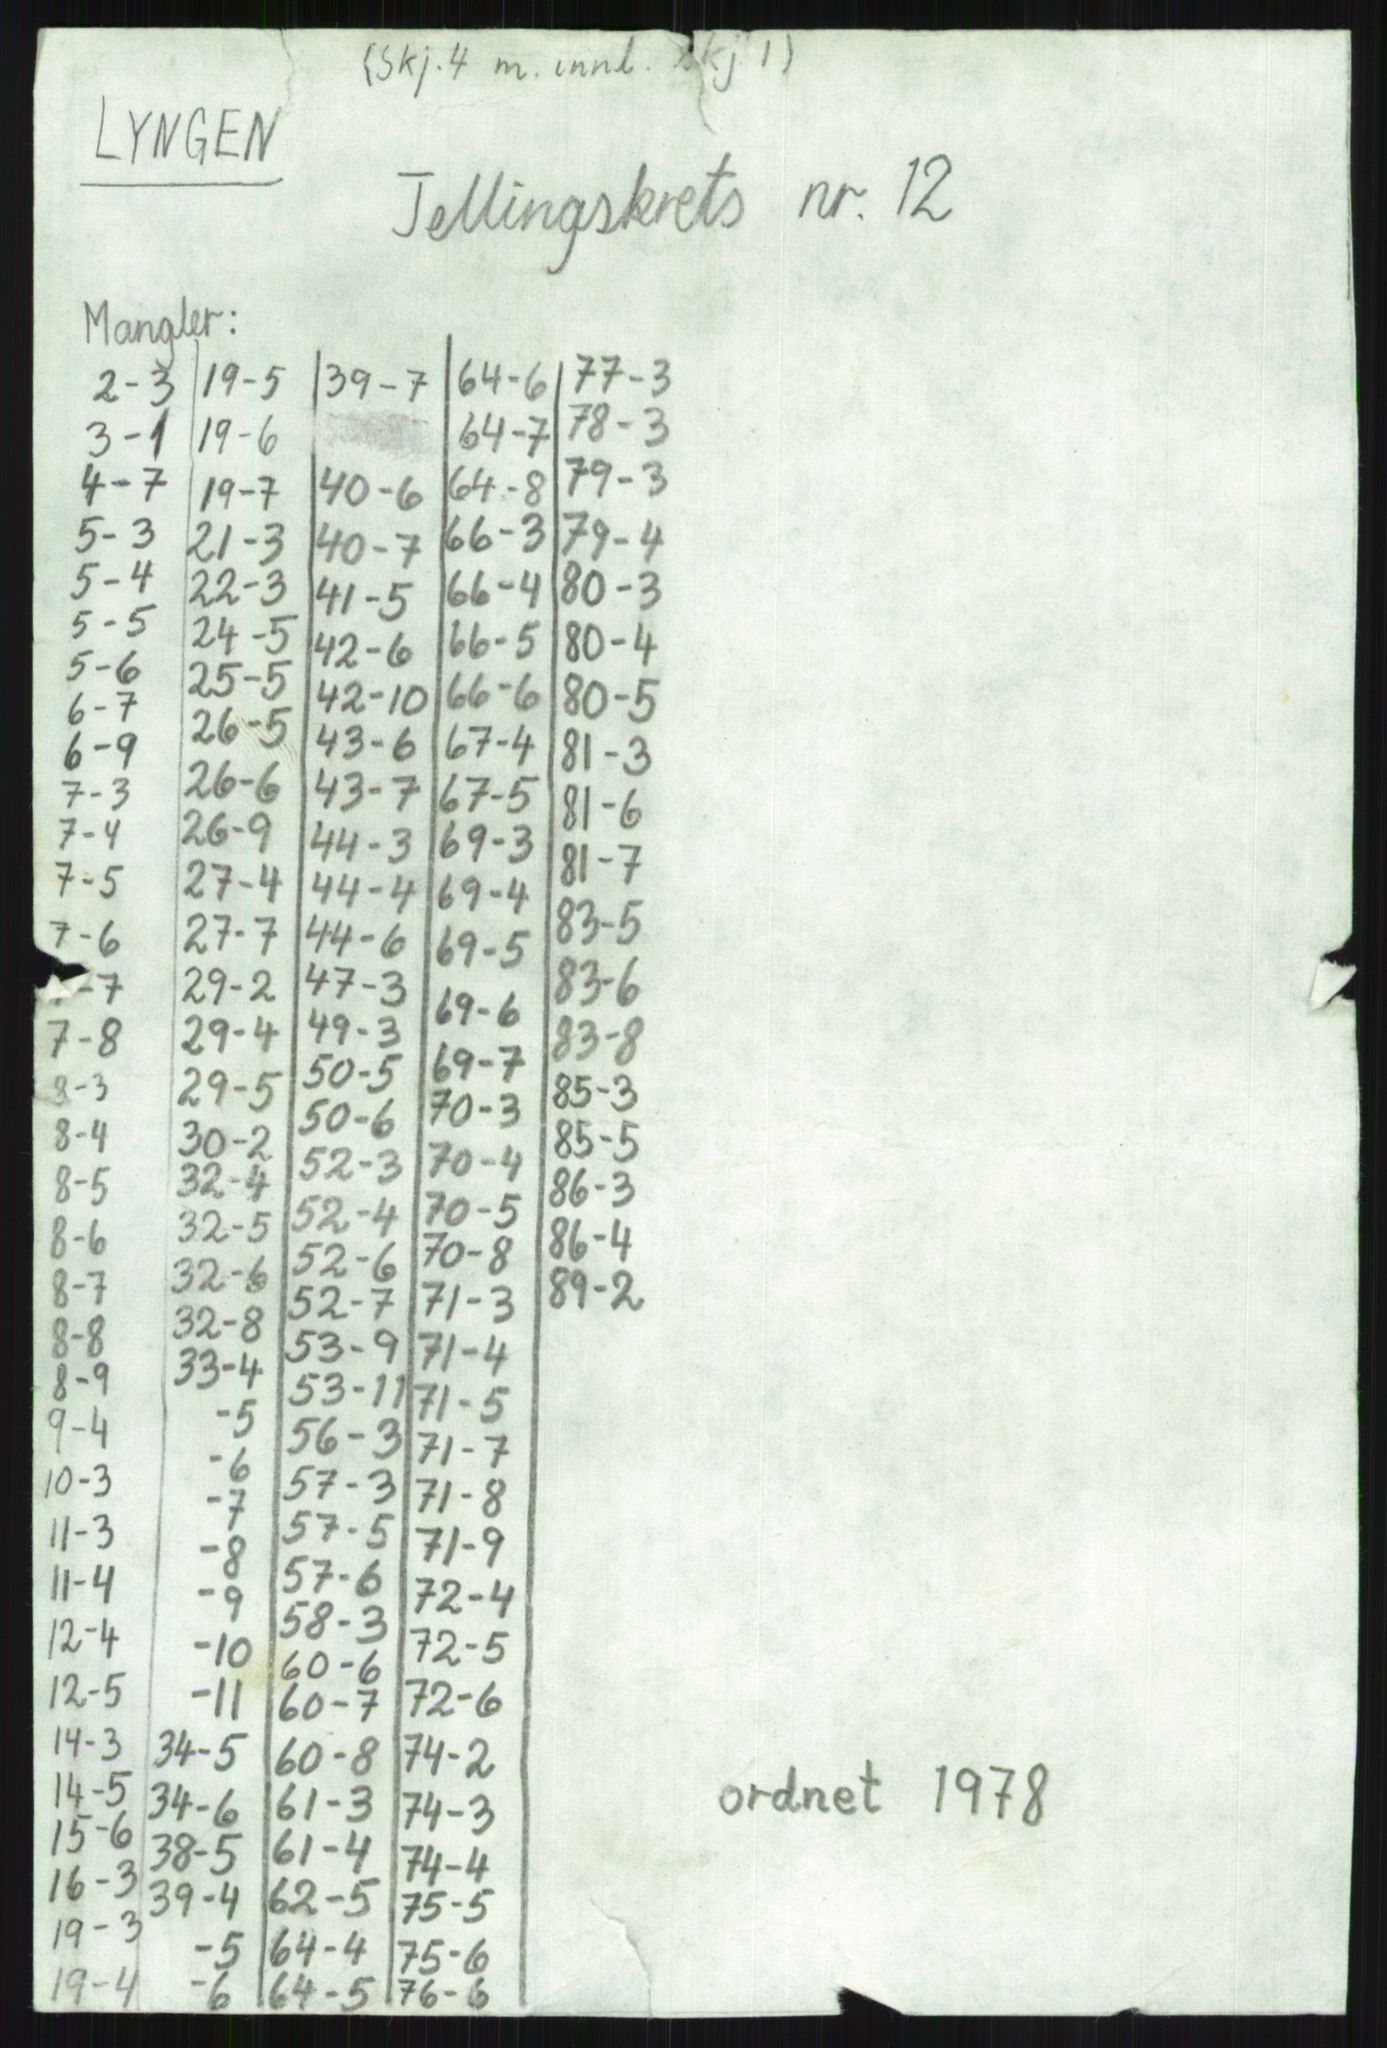 (Skj. 4 m. innl. skj 1)
LYNGEN
Tellingskrets nr. 12
Mangler:
2-3
3-1
4-7
5-3
5-4
5-5
5-6
6-7
6-9
7-3
7-4
7-5
7-6
-7
7-8
8-3
8-4
8-5
8-6
8-7
8-8
8-9
9-4
10-3
11-3
11-4
12-4
12-5
14-3
14-5
15-6
16-3
19-3
19-4
19-5
19-6
19-7
21-3
22-3
24-5
25-5
26-5
26-6
26-9
27-4
27-7
29-2
29-4
29-5
30-2
32-4
32-5
32-6
32-8
33-4
-5
-6
-7
-8
-9
-10
-11
34-5
34-6
38-5
39-4
-5
-6
39-7
40-6
40-7
41-5
42-6
42-10
43-6
43-7
44-3
44-4
44-6
47-3
49-3
50-5
50-6
52-3
52-4
52-6
52-7
53-9
53-11
56-3
57-3
57-5
57-6
58-3
60-6
60-7
60-8
61-3
61-4
62-5
64-4
64-5
64-6
64-7
64-8
66-3
66-4
66-5
66-6
67-4
67-5
69-3
69-4
69-5
69-6
69-7
70-3
70-4
70-5
70-8
71-3
71-4
71-5
71-7
71-8
71-9
72-4
72-5
72-6
74-2
74-3
74-4
75-5
75-6
76-6
77-3
78-3
79-3
79-4
80-3
80-4
80-5
81-3
81-6
81-7
83-5
83-6
83-8
85-3
85-5
86-3
86-4
89-2
ordnet 1978